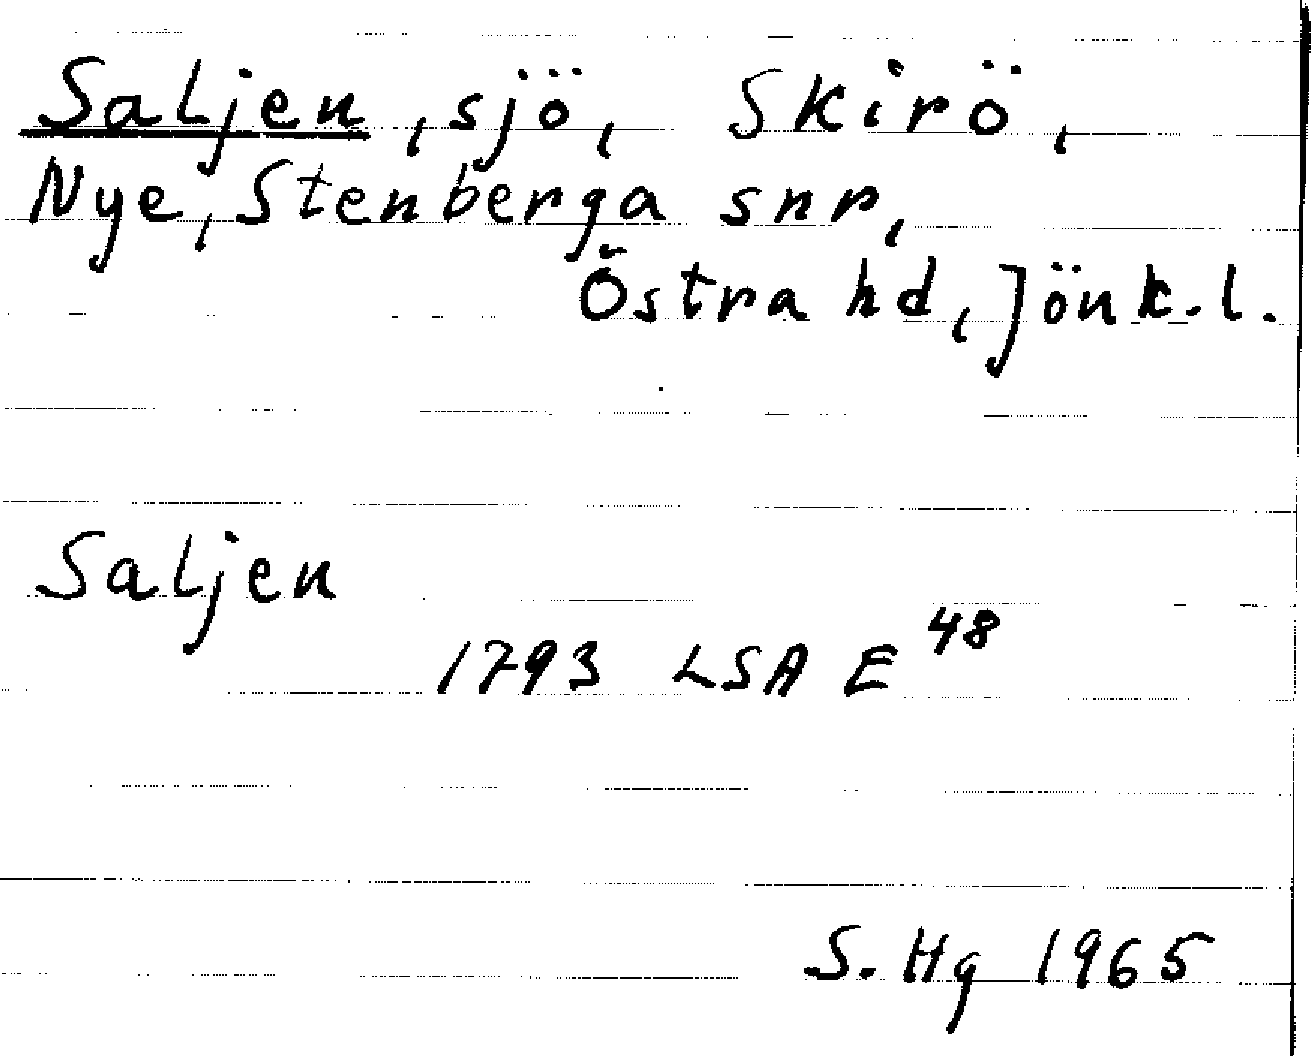 Saljen, sjö, Skirö,
Nye, Stenberga snr,
Östra hd, Jönk.l.
Saljen
1793 LSA E 48
S. Hg 1965